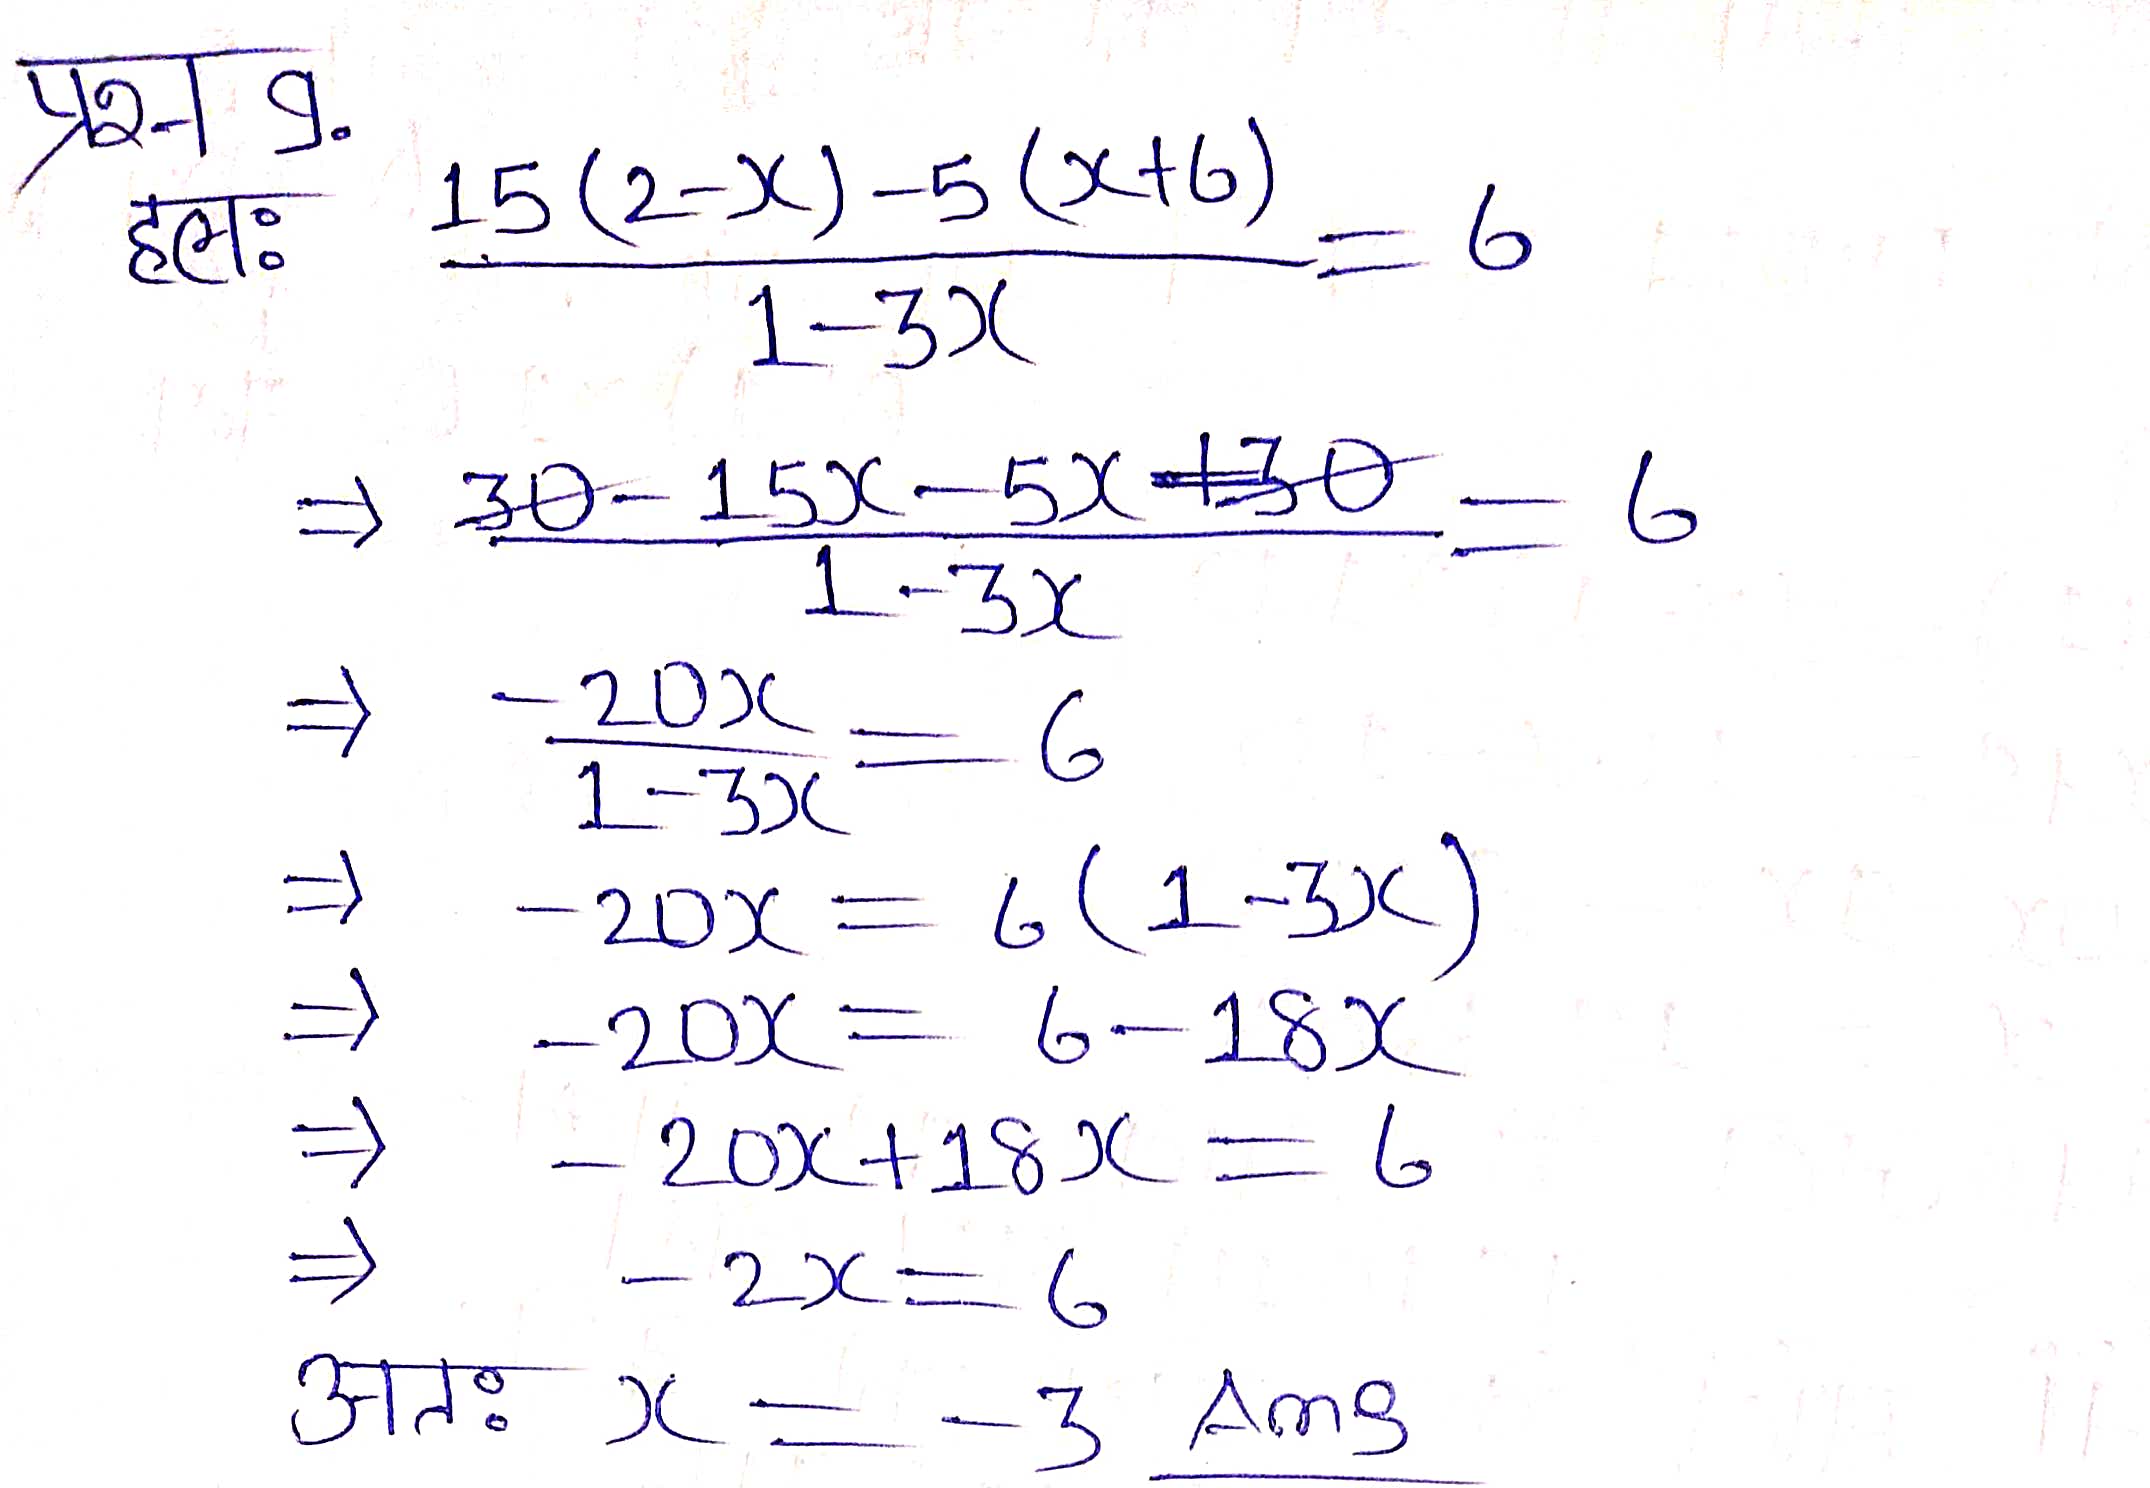 प्रश्न 9.
हलः 15(2-x)-5(x+6) / 1-3x = 6
⇒ 30-15x-5x+30 / 1-3x = 6
⇒ -20x / 1-3x = 6
⇒ -20x = 6(1-3x)
⇒ -20x = 6-18x
⇒ -20x+18x = 6
⇒ -2x = 6
अतः x = -3 Ans